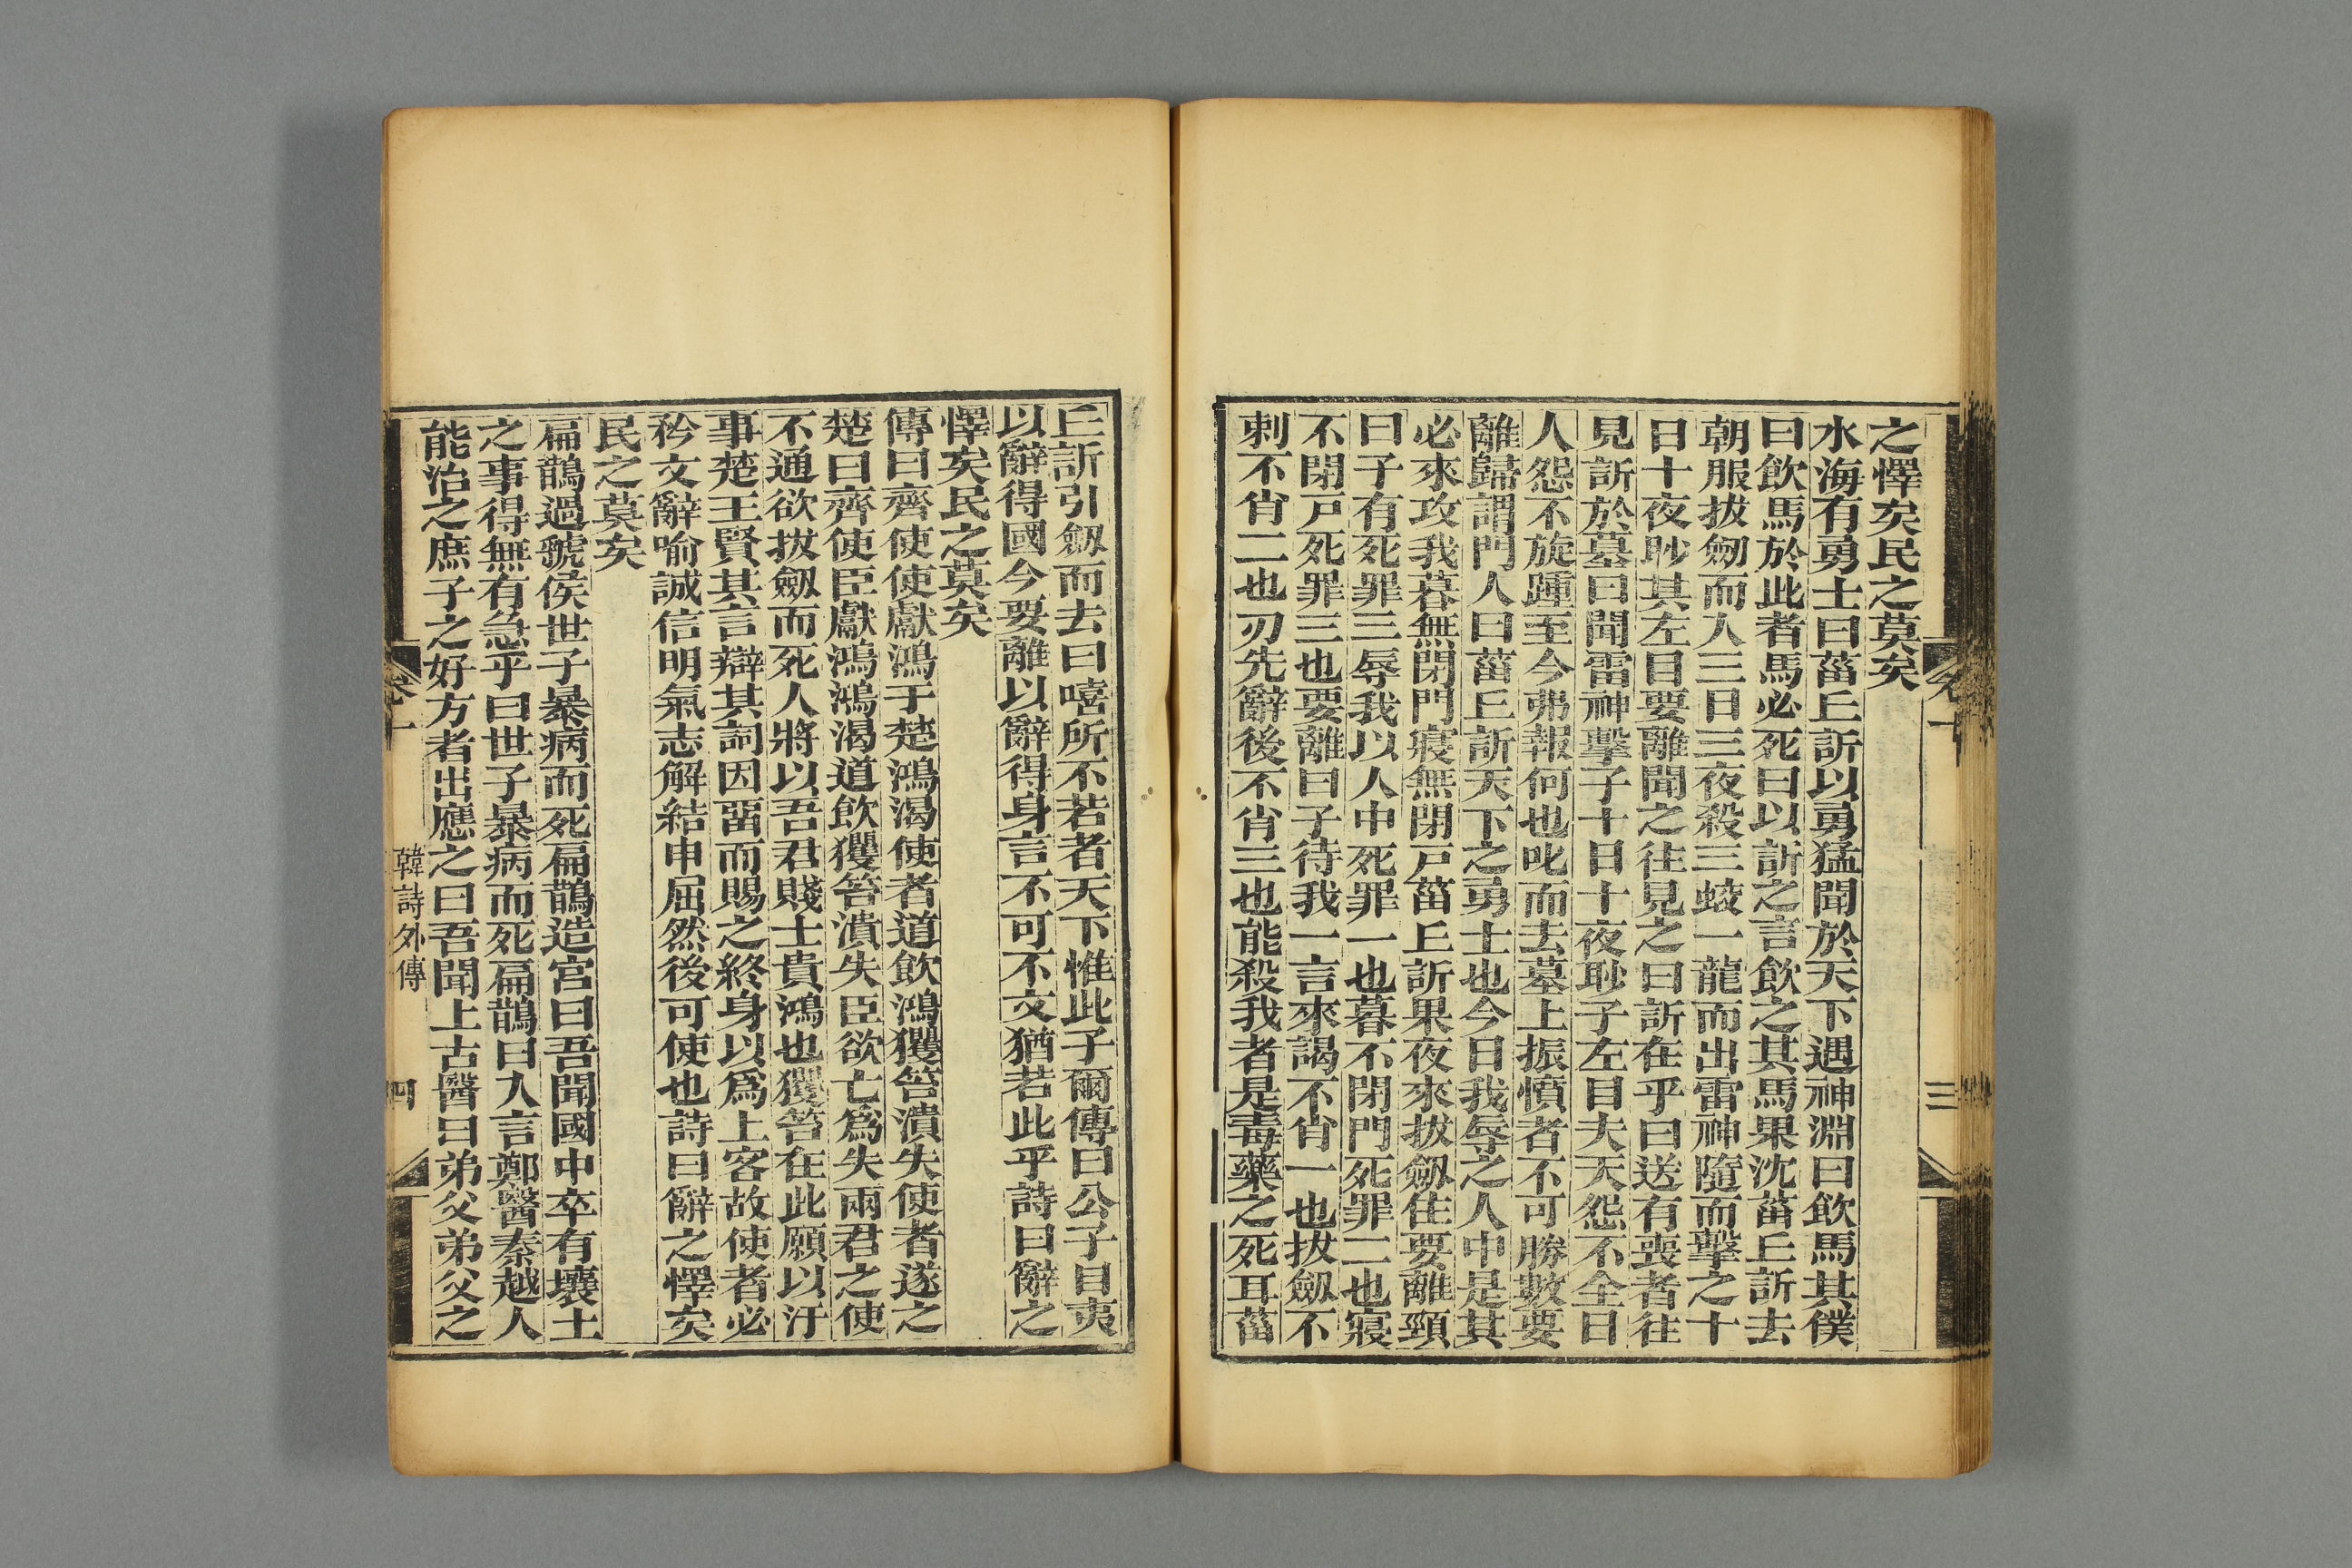 之懌矣民之莫矣
水海有勇士曰菑丘訢以勇猛聞於天下遇神淵曰飲馬其僕
曰飲馬於此者馬必死曰以訢之言飲之其馬果沈菑丘訢去
朝服拔劒而入三日三夜殺三蛟一龍而出雷神隨而擊之十
日十夜眇其左目要離聞之往見之曰訢在乎曰送有喪者往
見訢於墓曰聞雷神擊子十日十夜眇子左目夫天怨不全日
人怨不旋踵至今弗報何也叱而去墓上振憤者不可勝數要
離歸謂門人曰菑丘訢天下之勇士也今日我辱之人中是其
必來攻我暮無閉門寢無閉戶菑丘訢果夜來拔劒住要離頸
曰子有死罪三辱我以人中死罪一也暮不閉門死罪二也寢
不閉戶死罪三也要離曰子待我一言來謁不肖一也拔劒不
刺不肖二也刃先辭後不肖三也能殺我者是毒藥之死耳菑
卷十
三
丘訢引劒而去曰嘻所不若者天下惟此子爾傳曰公子目夷
以辭得國今要離以辭得身言不可不文猶若此乎詩曰辭之
懌矣民之莫矣
傳曰齊使使獻鴻于楚鴻渴使者道飲鴻玃笞潰失使者遂之
楚曰齊使臣獻鴻鴻渴道飲玃笞潰失臣欲亡爲失兩君之使
不通欲拔劒而死人將以吾君賤士貴鴻也玃笞在此願以汙
事楚王賢其言辯其詞因畱而賜之終身以爲上客故使者必
矜文辭喻誠信明氣志解結申屈然後可使也詩曰辭之懌矣
民之莫矣
扁鵲過虢侯世子暴病而死扁鵲造宮曰吾聞國中卒有壤土
之事得無有急乎曰世子暴病而死扁鵲曰入言鄭醫秦越人
能治之庶子之好方者出應之曰吾聞上古醫曰弟父弟父之
卷十
韓詩外傳
四